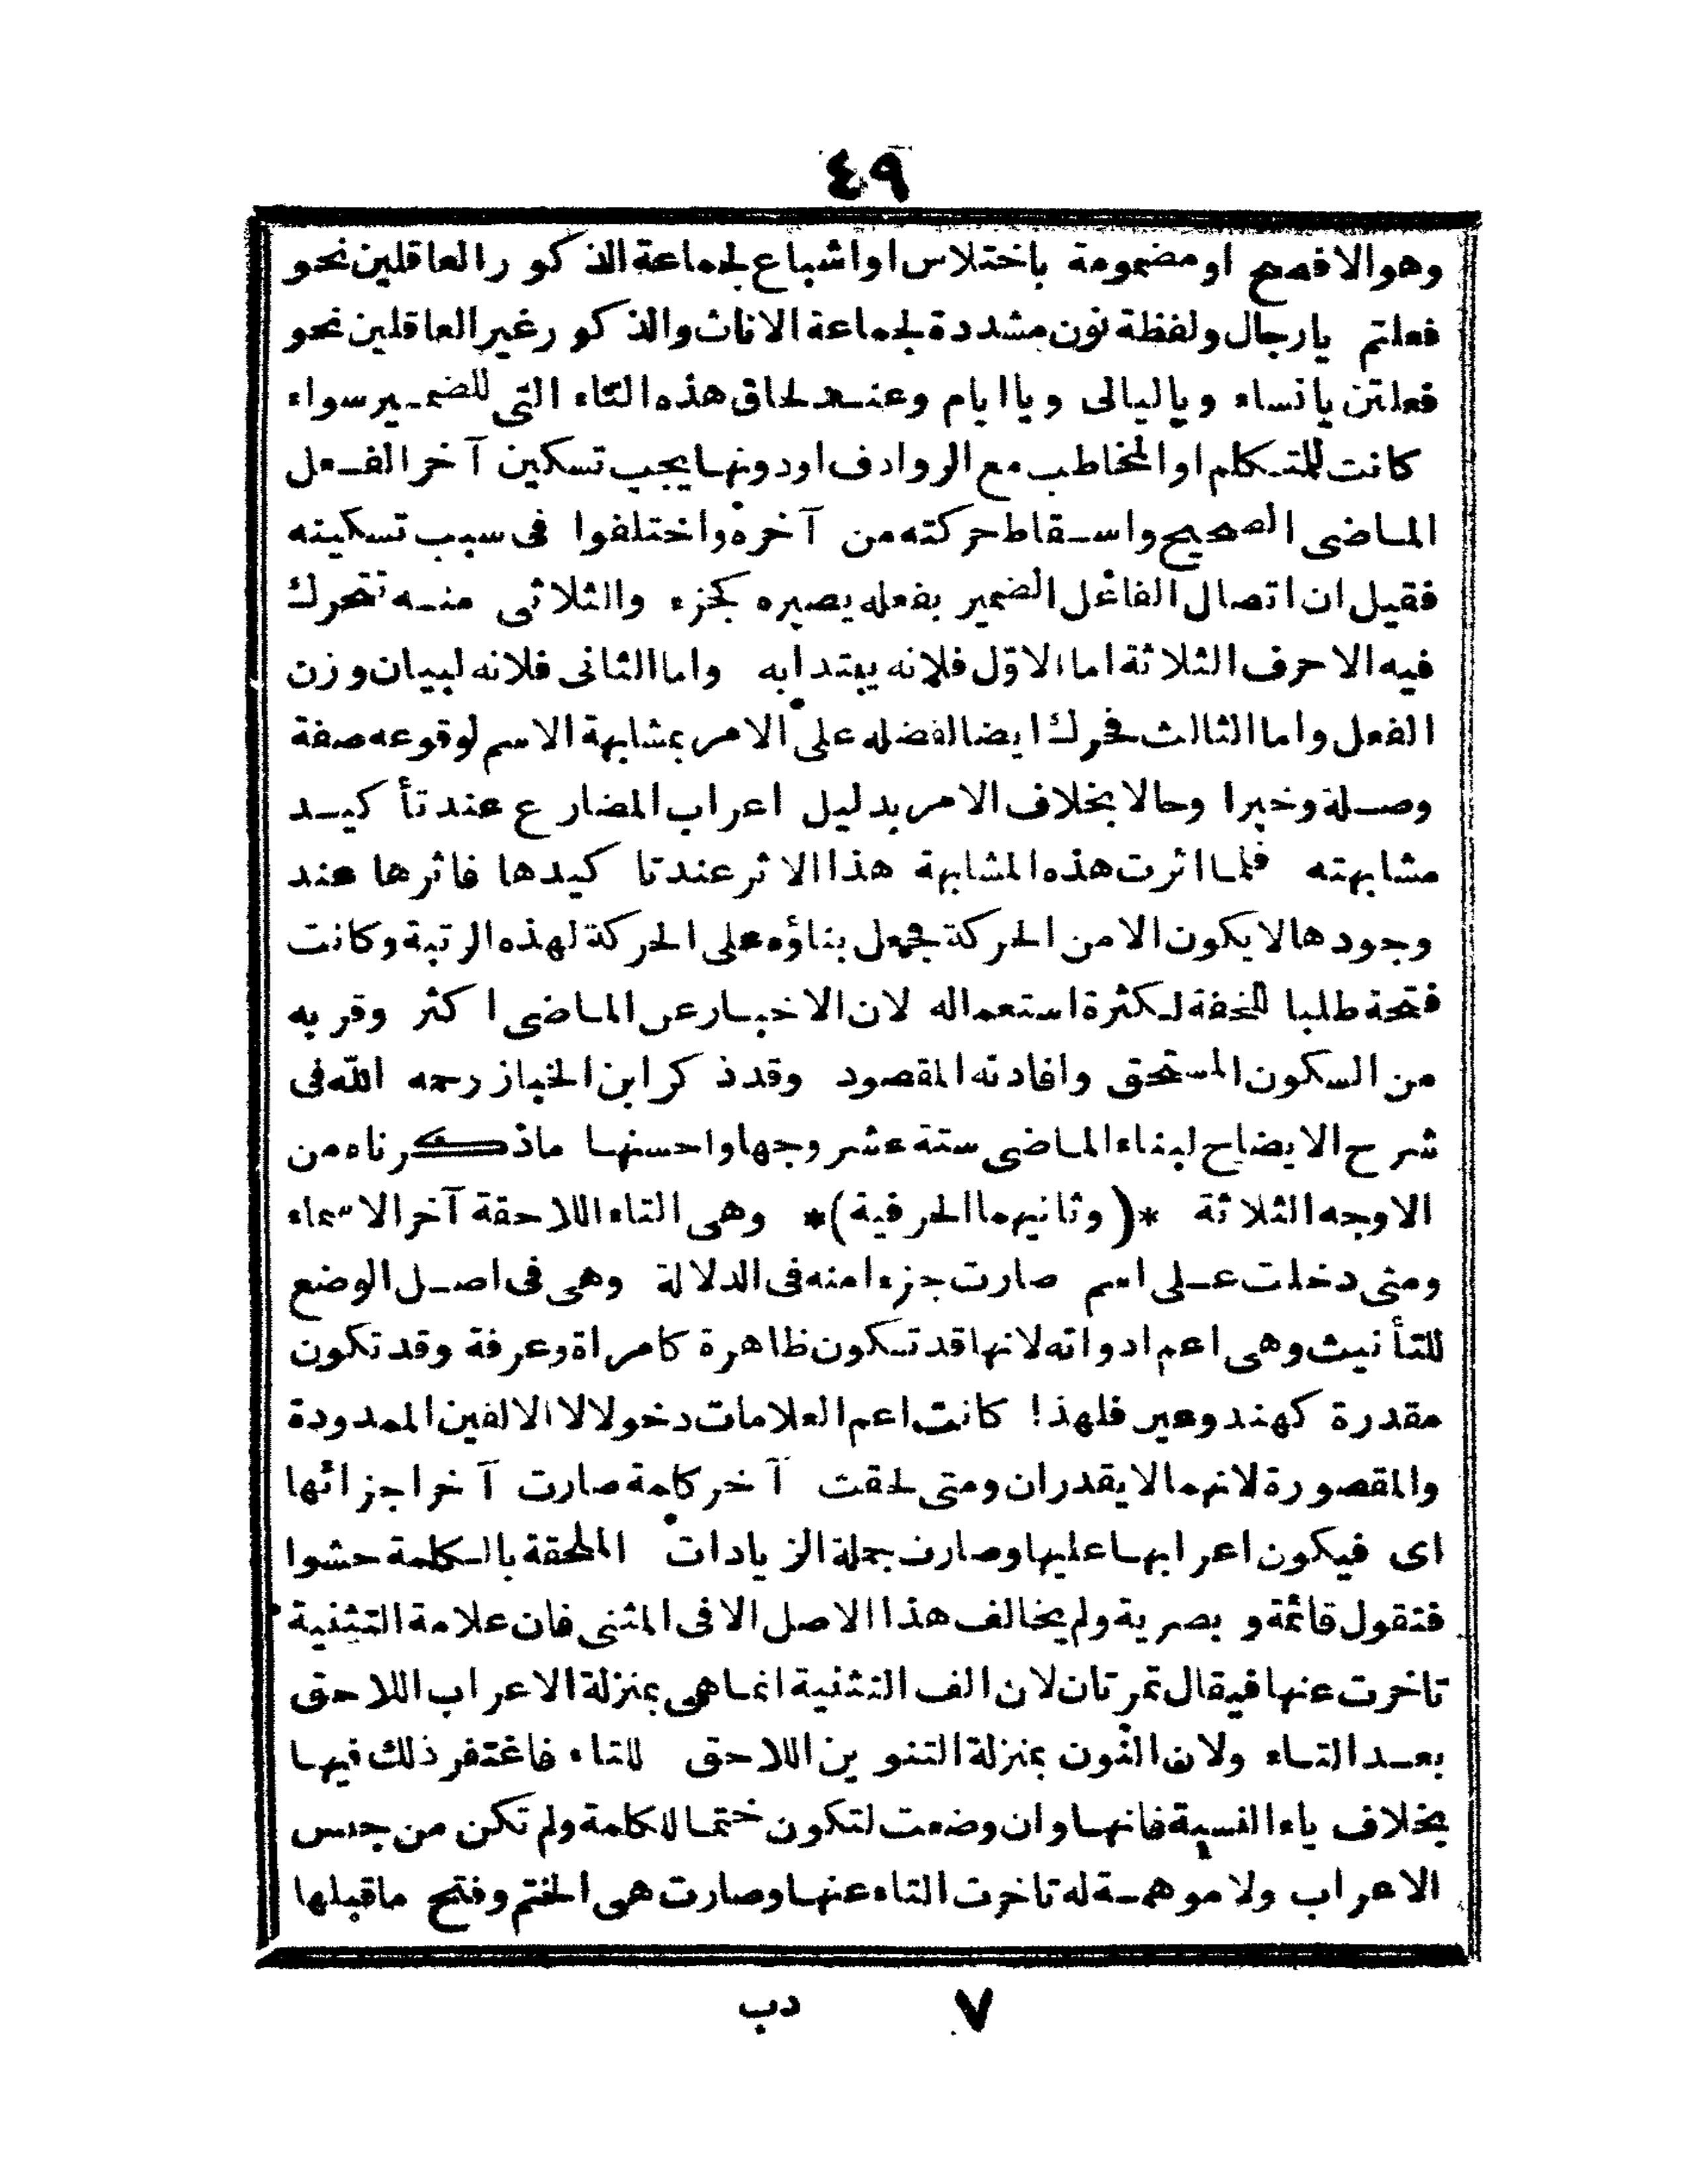 ٤٩
وهو الافصح او مضمومة باختلاس او اشباع لجماعة الذكور العاقلين نحو
فعلتم يارجال ولفظة نون مشددة لجماعة الاناث والذكور غير العاقلين نحو
فعلتن يانساء ويا ليالى ويا ايام وعند لحاق هذه التاء التى للضمير سواء
كانت للمتكلم او المخاطب مع الروادف او دونها يجب تسكين آخر الفعل
الماضى الصحيح واسقاط حركته من آخره واختلفوا فى سبب تسكينه
فقيل ان اتصال الفاعل الضمير بفعله يصيره كجزء والثلاثى منه تتحرك
فيه الاحرف الثلاثة اما الاوّل فلانه يبتدأ به واما الثانى فلانه لبيان وزن
الفعل واما الثالث فحرك ايضا لفضله على الامر بمشابهة الاسم لوقوعه صفة
وصلة وخبرا وحالا بخلاف الامر بدليل اعراب المضارع عند تأكيد
مشابهته فلما اثرت هذه المشابهة هذا الاثر عند تاكيدها فاثرها عند
وجودها لا يكون الا من الحركة فجعل بناؤه على الحركة لهذه الرتبة وكانت
فتحة طلبا للخفة لكثرة استعماله لان الاخبار عن الماضى اكثر وقربه
من السكون المستحق وافادته المقصود وقد ذكر ابن الخباز رحمه الله فى
شرح الايضاح لبناء الماضى ستة عشر وجها واحسنها ماذكرناه من
الاوجه الثلاثة *(وثانيهما الحرفية)* وهى التاء اللاحقة آخر الاسماء
ومتى دخلت على اسم صارت جزءا منه فى الدلالة وهى فى اصل الوضع
للتأنيث وهى اعم ادواته لانها قد تكون ظاهرة كامراة وعرفة وقد تكون
مقدرة كهند وعير فلهذا كانت اعم العلامات دخولا لا الالفين الممدودة
والمقصورة لانهما لا يقدران ومتى لحقت آخر كلمة صارت آخر اجزائها
اى فيكون اعرابها عليها وصارت جملة الزيادات الملحقة بالكلمة حشوا
فتقول قائمة وبصرية ولم يخالف هذا الاصل الا فى المثنى فان علامة التثنية
تاخرت عنها فيقال تمرتان لان الف التثنية انما هى بمنزلة الاعراب اللاحق
بعد التاء ولان النون بمنزلة التنوين اللاحق للتاء فاغتفر ذلك فيها
بخلاف ياء النسبة فانها وان وضعت لتكون ختما للكلمة ولم تكن من جنس
الاعراب ولا موهمة له تاخرت التاء عنها وصارت هى الختم وفتح ماقبلها
٧ دب